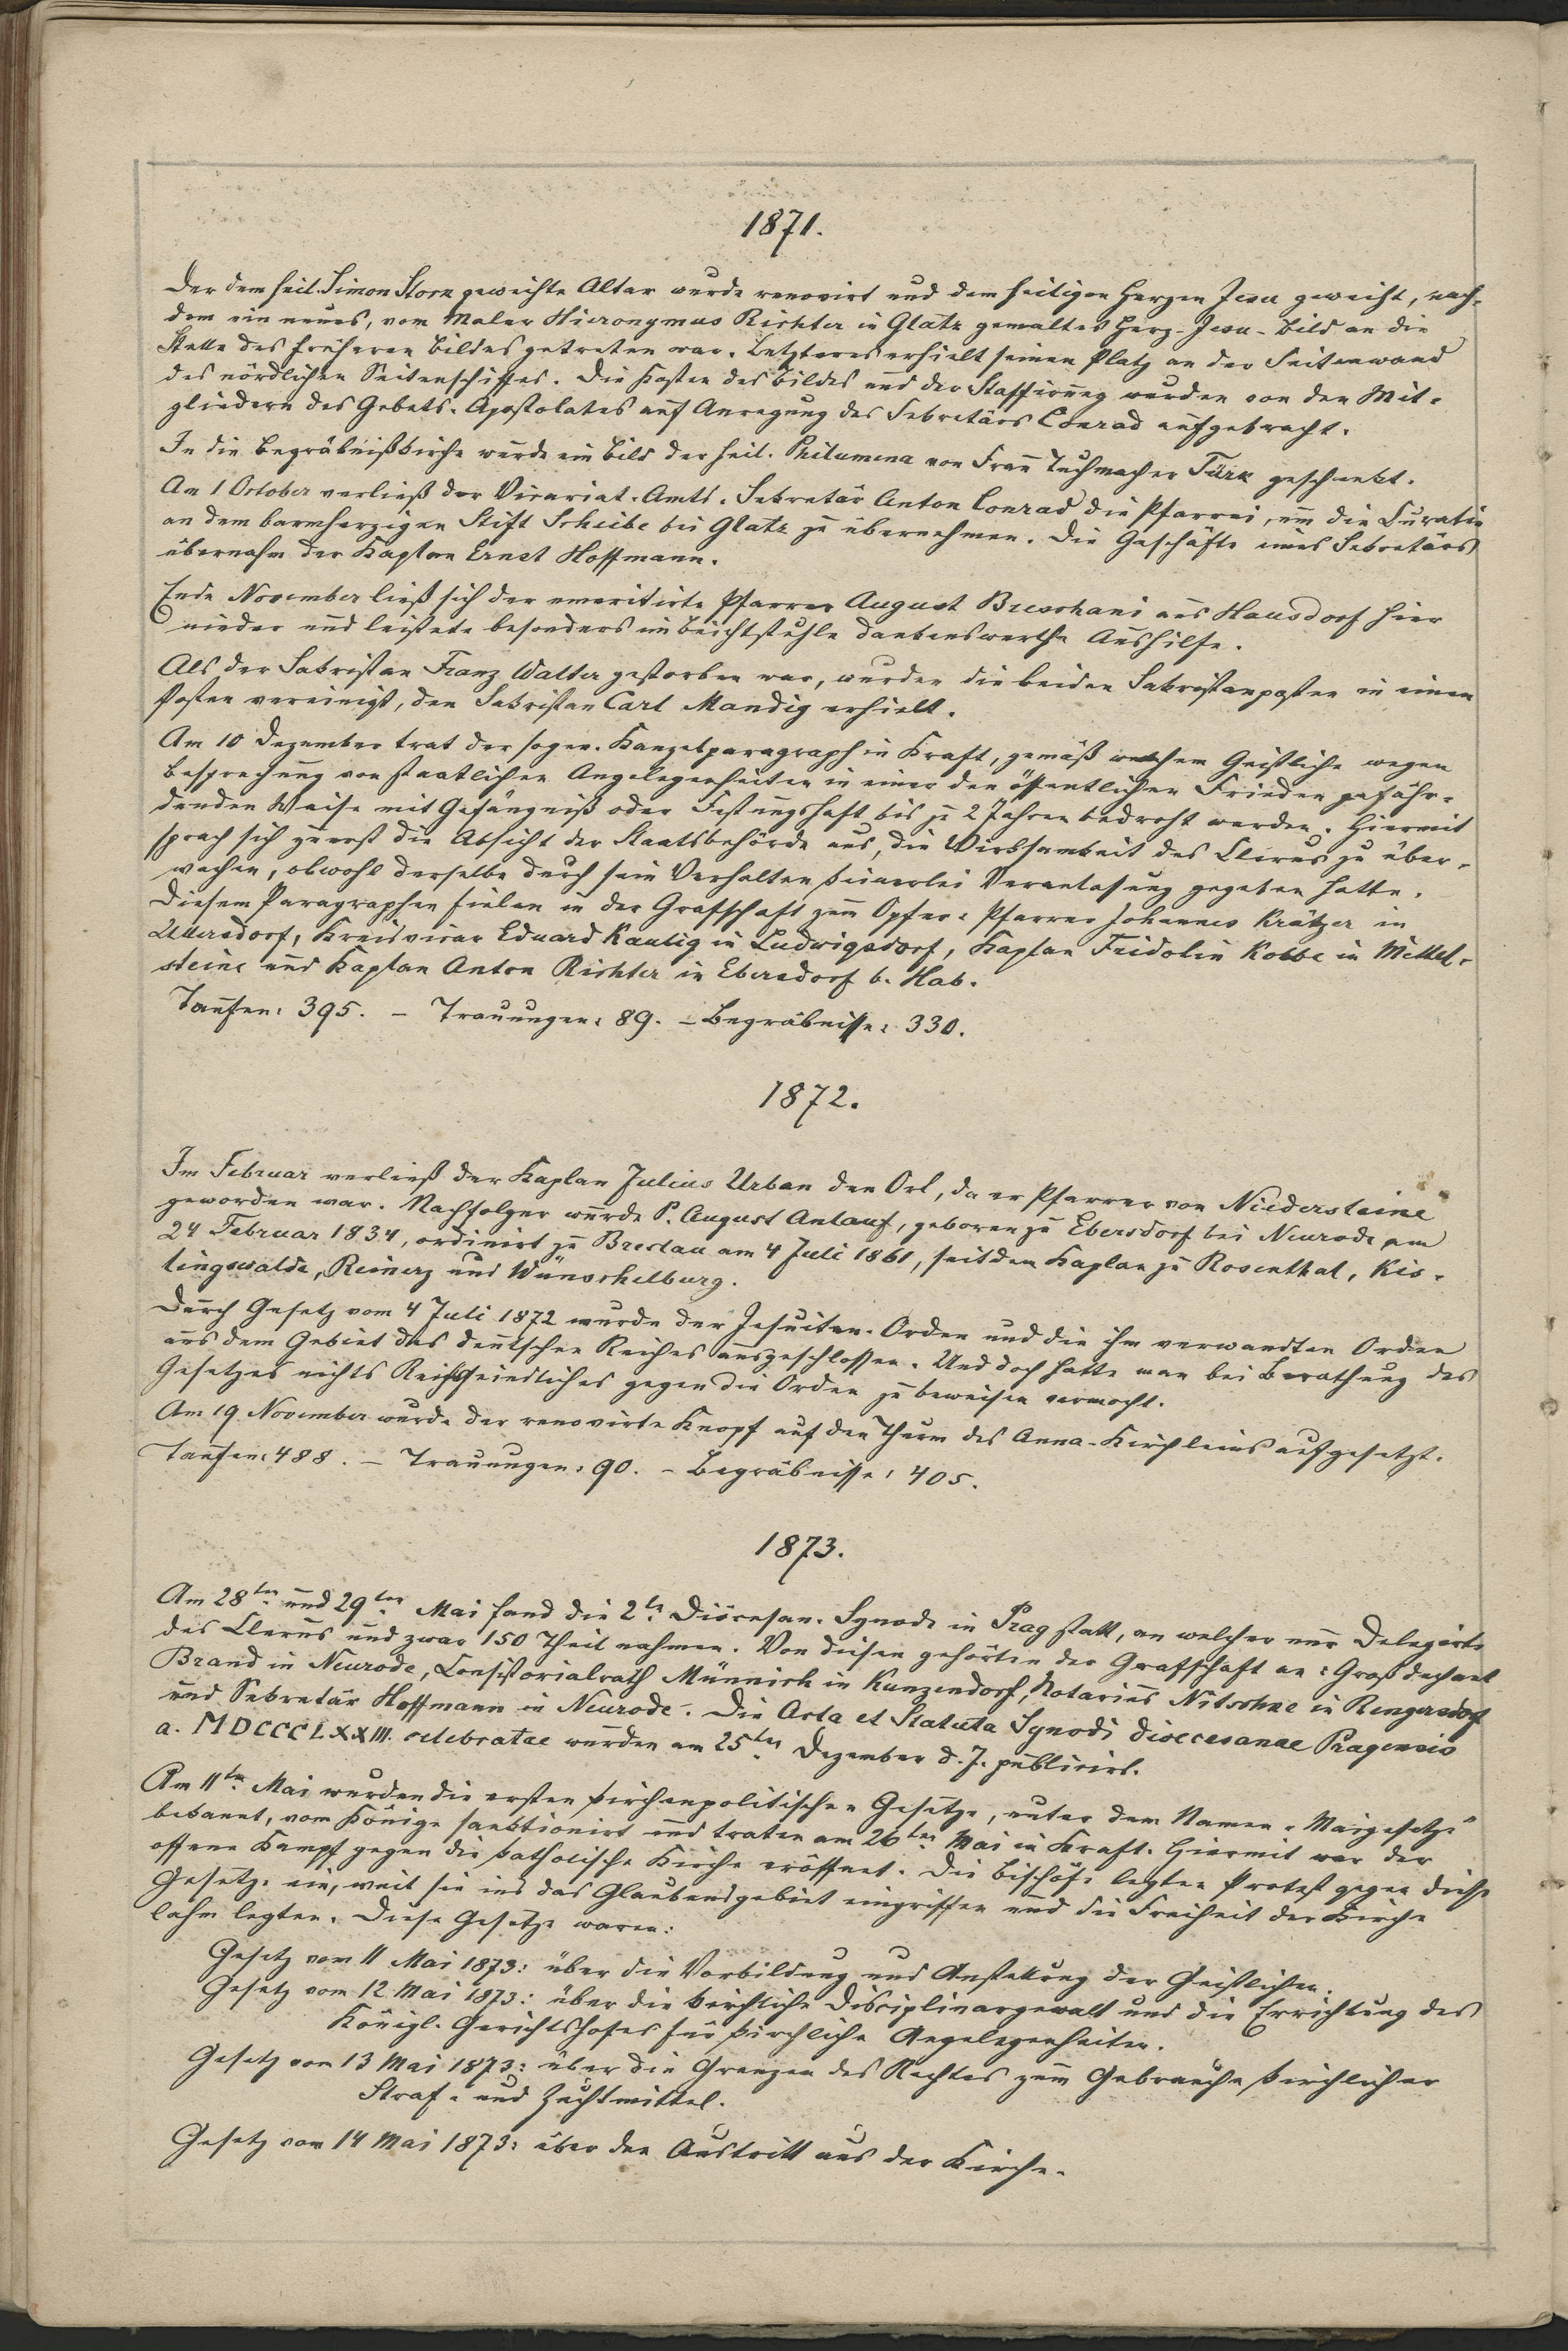 1871.
Der dem heil. Simon Stock geweihte Altar wurde renovirt und dem heiligen Herzen Jesu geweiht, nach-
dem ein neues, vom Maler Hieronymus Richter in Glatz gemaltes Herz-Jesu-Bild an die
Stelle des früheren Bildes getreten war. Letzteres erhielt seinen Platz an der Seitenwand
des nördlichen Seitenschiffes. Die Kosten des Bildes und der Staffirung wurden von den Mit-
gliedern des Gebets-Apostolates auf Anregung des Sekretärs Conrad aufgebracht.
In die Begräbnißkirche wurde ein Bild der heil. Philumena von Frau Tuchmacher Türk geschenkt.
Am 1 October verließ der Vicariat-Amts-Sekretär Anton Conrad die Pfarrei, um die Curatie
an dem barmherzigen Stift Scheibe bei Glatz zu übernehmen. Die Geschäfte eines Sekretärs
übernahm der Kaplan Ernst Hoffmann.
Ende November ließ sich der emeritirte Pfarrer August Breschani aus Hausdorf hier
nieder und leistete besonders im Beichtstuhle dankenswerthe Aushilfe.
Als der Sakristan Franz Walter gestorben war, wurden die beiden Sakristanposten in einen
Posten vereinigt, den Sakristan Carl Mandig erhielt.
Am 10 Dezember trat der sogen. Kanzelparagraph in Kraft, gemäß welchem Geistliche wegen
Besprechung von staatlichen Angelegenheiten in einer den öffentlichen Frieden gefähr-
denden Weise mit Gefängniß oder Festungshaft bis zu 2 Jahren bedroht werden. Hiermit
sprach sich zuerst die Absicht der Staatsbehörde aus, die Wirksamkeit des Clerus zu über-
wachen, obwohl derselbe durch sein Verhalten keinerlei Veranlasung gegeben hatte.
Diesem Paragraphen fielen in der Grafschaft zum Opfer: Pfarrer Johannes Krätzer in
Ullersdorf, Kreisvicar Eduard Kautig in Ludwigsdorf, Kaplan Fridolin Kobbe in Mittel-
steine und Kaplan Anton Richter in Ebersdorf b. Hab.
Taufen: 395. – Trauungen: 89. – Begräbnisse: 330.
1872.
Im Februar verließ der Kaplan Julius Urban den Ort, da er Pfarrer von Niedersteine
geworden war. Nachfolger wurde P. August Anlauf, geboren zu Ebersdorf bei Neurode am
24 Februar 1834, ordinirt zu Breslau am 4 Juli 1861, seitdem Kaplan zu Rosenthal, Kis-
lingswalde, Reinerz und Wünschelburg.
Durch Gesetz vom 4 Juli 1872 wurde der Jesuiten-Orden und die ihm verwandten Orden
aus dem Gebiet des deutschen Reiches ausgeschlossen. Und doch hatte man bei Berathung des
Gesetzes nichts Reichsfeindliches gegen die Orden zu beweisen vermocht.
Am 19 November wurde der renovirte Knopf auf den Thurm des Anna-Kirchleins aufgesetzt.
Taufen: 488. – Trauungen: 90. – Begräbnisse: 405.
1873.
Am 28ten und 29ten Mai fand die 2te Diöcesan-Synode in Prag statt, an welcher nur Delegirte
des Clerus und zwar 150 Theil nahmen. Von diesen gehörten der Grafschaft an: Großdechant
Brand in Neurode, Consistorialrath Münnich in Kunzendorf, Notarius Nitschke in Rengersdorf
und Sekretär Hoffmann in Neurode. Die Acta et Statuta Synodi dioecesanae Pragensis
a. MDCCCLXXIII. celebratae wurden am 25ten Dezember d. J. publicirt.
Am 11ten Mai wurden die ersten kirchenpolitischen Gesetze, unter dem Namen „Maigesetze"
bekannt, vom Könige sanktionirt und traten am 26ten Mai in Kraft. Hiermit war der
offene Kampf gegen die katholische Kirche eröffnet. Die Bischöfe legten Protest gegen diese
Gesetze ein, weil sie ins das Glaubensgebiet eingriffen und die Freiheit der Kirche
lahm legten. Diese Gesetze waren:
Gesetz vom 11 Mai 1873: über die Vorbildung und Anstellung der Geistlichen.
Gesetz vom 12 Mai 1873: über die kirchliche Disciplinargewalt und die Errichtung des
Königl. Gerichtshofes für kirchliche Angelegenheiten.
Gesetz vom 13 Mai 1873: über die Grenzen des Rechtes zum Gebrauche kirchlicher
Straf- und Zuchtmittel.
Gesetz vom 14 Mai 1873: über den Austritt aus der Kirche.